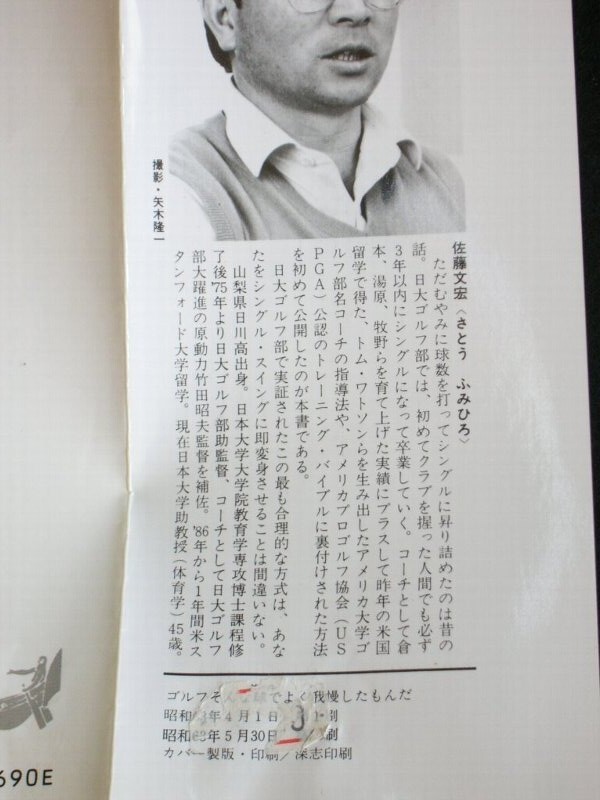 撮影・矢木隆一
佐藤文宏〈さとう ふみひろ〉
ただむやみに球数を打ってシングルに昇り詰めたのは昔の
話。日大ゴルフ部では、初めてクラブを握った人間でも必ず
3年以内にシングルになって卒業していく。コーチとして倉
本、湯原、牧野らを育て上げた実績にプラスして昨年の米国
留学で得た、トム・ワトソンらを生み出したアメリカ大学ゴ
ルフ部名コーチの指導法や、アメリカプロゴルフ協会（US
PGA）公認のトレーニング・バイブルに裏付けされた方法
を初めて公開したのが本書である。
日大ゴルフ部で実証されたこの最も合理的な方式は、あな
たをシングル・スイングに即変身させることは間違いない。
山梨県日川高出身。日本大学大学院教育学専攻博士課程修
了後'75年より日大ゴルフ部助監督、コーチとして日大ゴルフ
部大躍進の原動力竹田昭夫監督を補佐。'86年から1年間米ス
タンフォード大学留学。現在日本大学助教授（体育学）45歳。
ゴルフそん でよく我慢したもんだ
昭和 年4月1日 刷
昭和 年5月30日 刷
カバー製版・印刷／深志印刷
3
690E